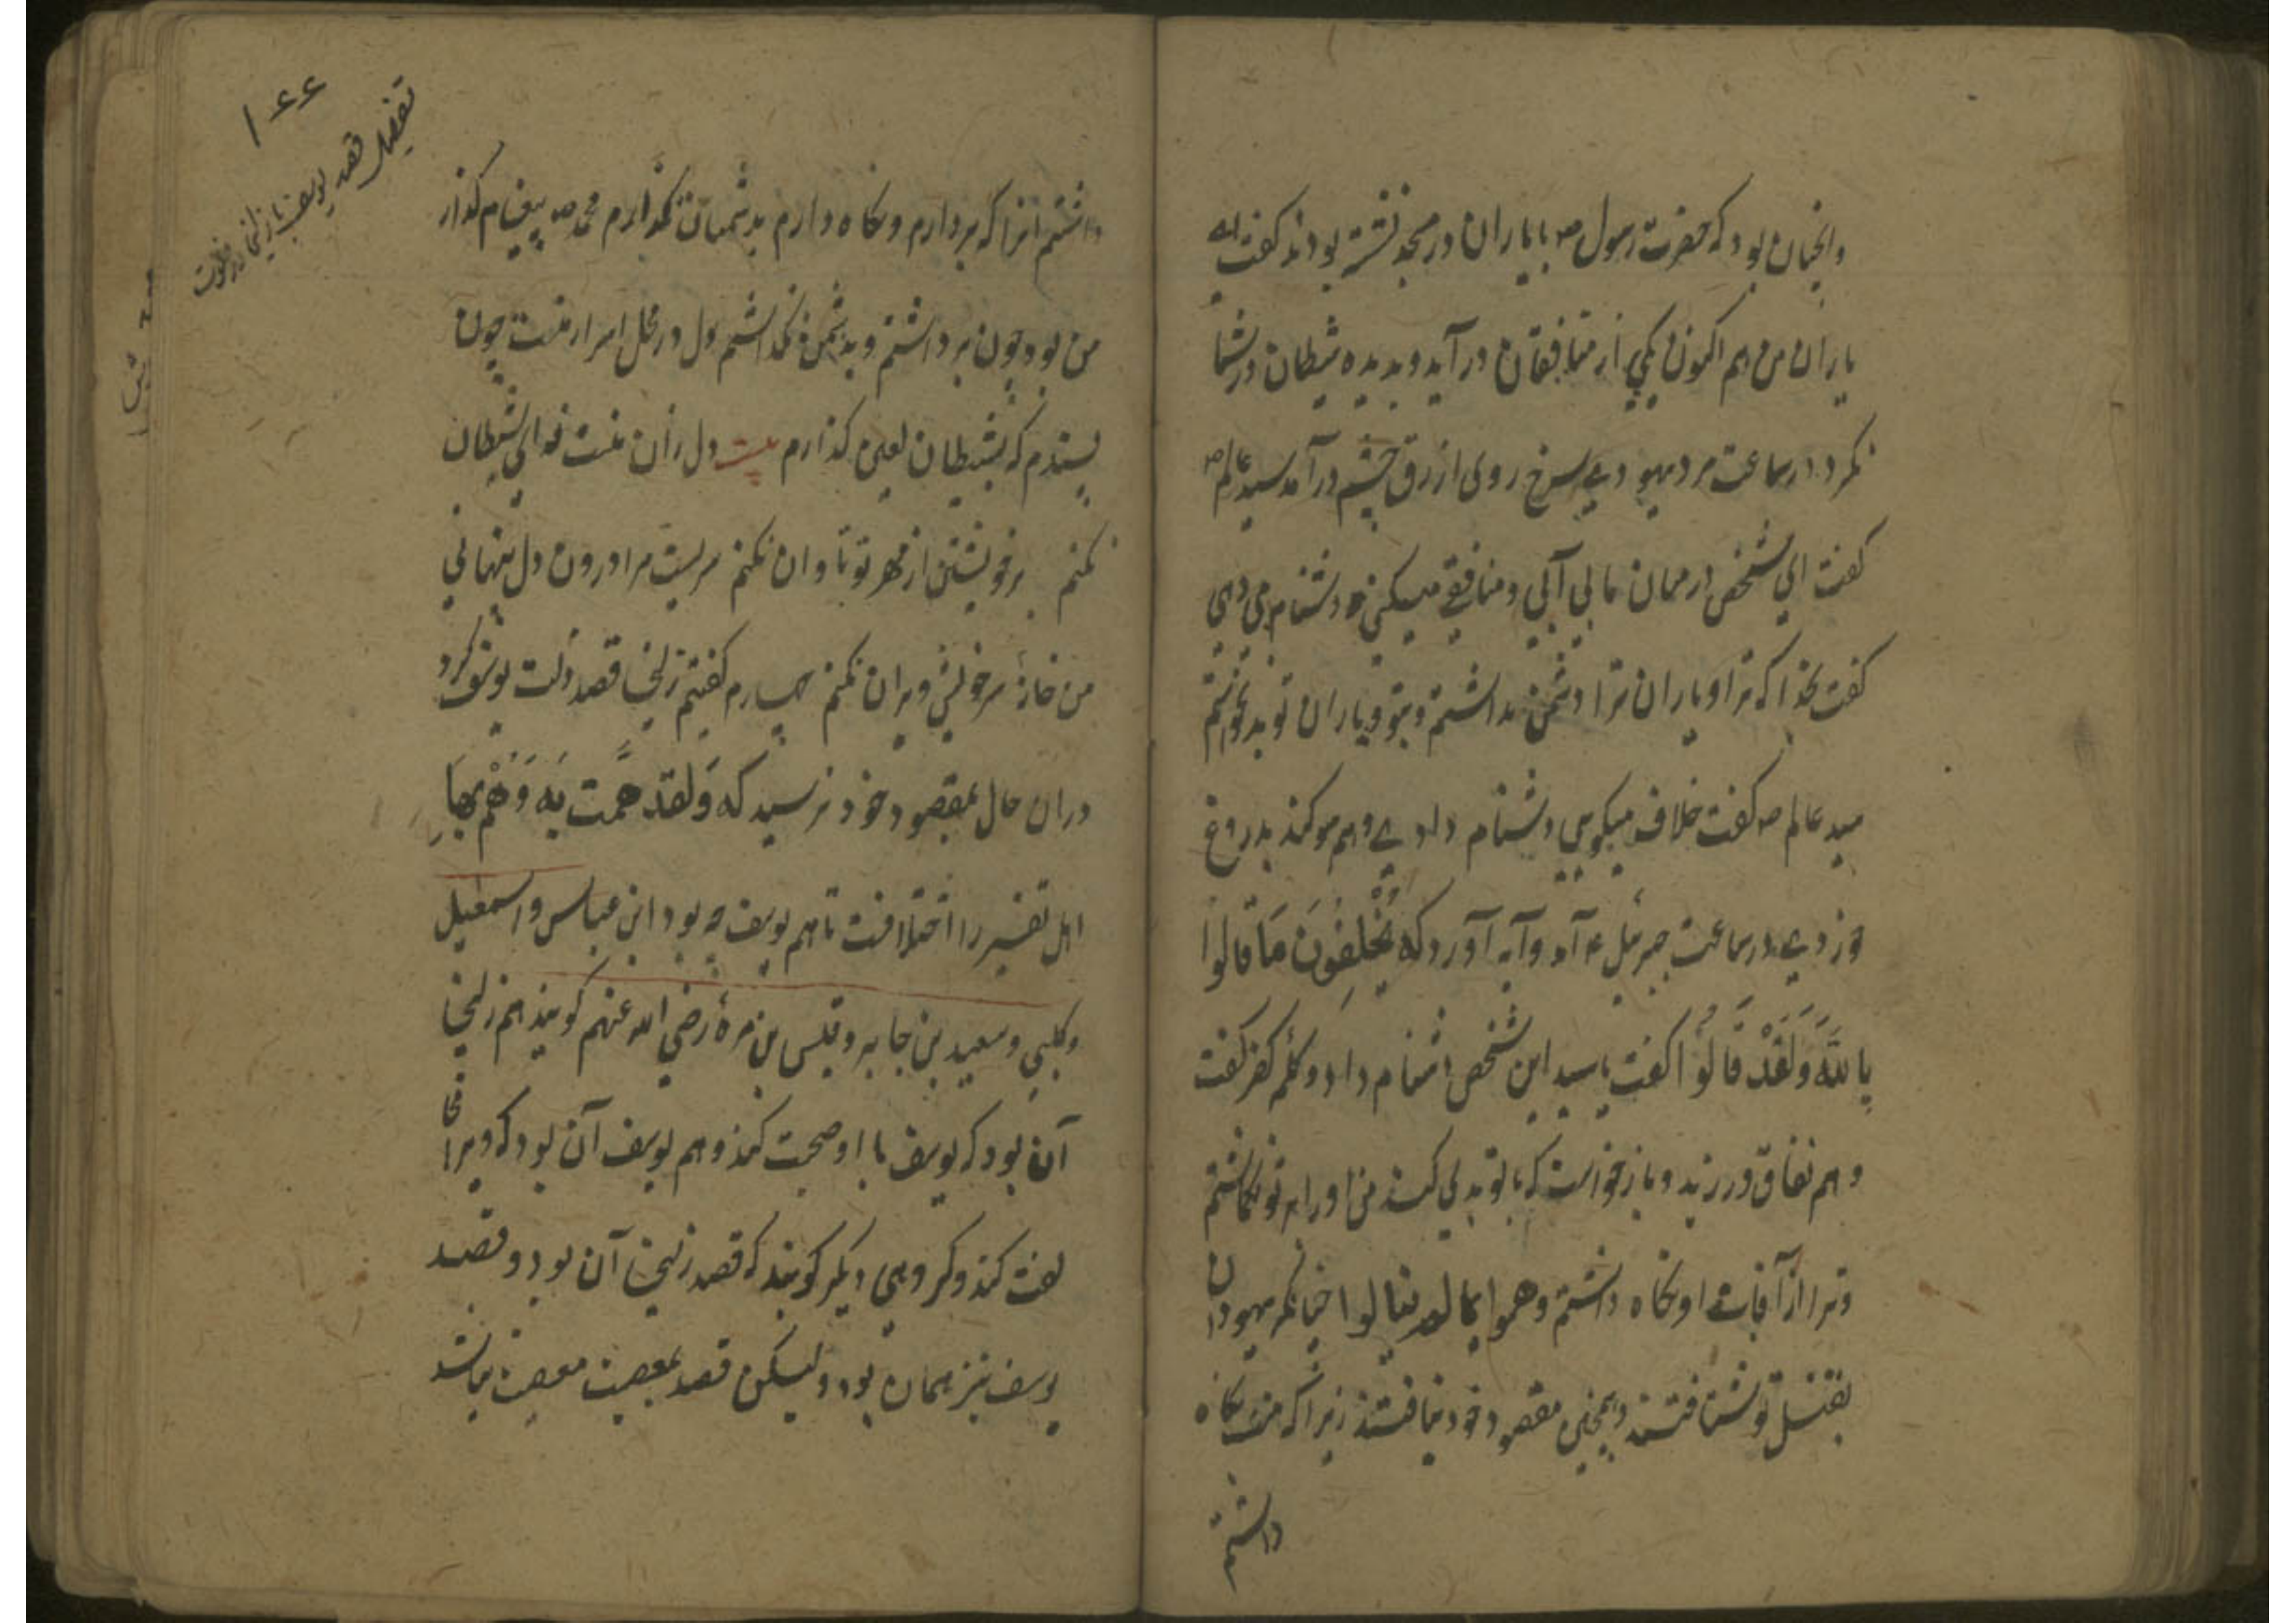 وانچنان بود که حضرت رسول ص با یاران در مسجد نشسته بودند گفت ای
یاران من هم اکنون یکی از منافقان در آید و بدیده شیطان در شما
نکرد در ساعت مرد یهودیی سرخ روی ازرق چشم در آمد سید عالم ص
کفت ای شخص در میان ما می آیی و منافقی میکنی و دشنام می دهی
کفت بخدا که ترا و یاران ترا دشمن نداشتم و بتو و یاران تو بد نخواستم
سید عالم ص کفت خلاف میکویی دشنام دادی و هم سوکند بدروغ
خوردی در ساعت جبرئیل ع آمد و آیه آورد که یَحْلِفُونَ مَا قَالُوا
بِاللَّهِ وَلَقَدْ قَالُوا کفت یا سید این شخص دشنام داد و کلمه کفر کفت
و هم نفاق ورزید و باز خواست که با تو بدی کند من او را بر تو نکماشتم
و ترا از آفات او نکاه داشتم وهموا بما لم ینالوا چنانکه یهودان
بقتل تو شتافتند و همچنین مقصود خود نیافتند زیرا که منت نکاه
داشتم
۱۶۶
تفصیل قصه یوسف با زلیخا در خلوت
داشتم انرا که بردارم و نکاه دارم بدشمنان نکذارم محمد ص پیغام کذار
من بود چون برداشتم و بدشمن نکذاشتم دل در محل اسرار منست چون
پسندم که بشیطان لعین کذارم بیت دل زان منست فدای شیطان
نکنم بر خویشتن از مهر تو تاوان نکنم سریست مرا درون دل پنهانی
من خانهٔ سر خویش ویران نکنم چهارم کفتیم زلیخا قصد ذلت یوسف کرد
دران حال بمقصود خود نرسید که وَلَقَدْ هَمَّت بِهِ وَهَمَّ بِهَا
اهل تفسیر را اختلافست تا هم یوسف چه بود ابن عباس و اسمعیل
و کلبی و سعید بن جابر و قیس بن مرهٔ رضی الله عنهم کویند هم زلیخا
آن بود که یوسف با او صحبت کند و هم یوسف آن بود که ویرا
لعنت کند و کروهی دیکر کویند که قصد زلیخا آن بود و قصد
یوسف نیز همان بود ولیکن قصد بمعصیت معصیت نباشد